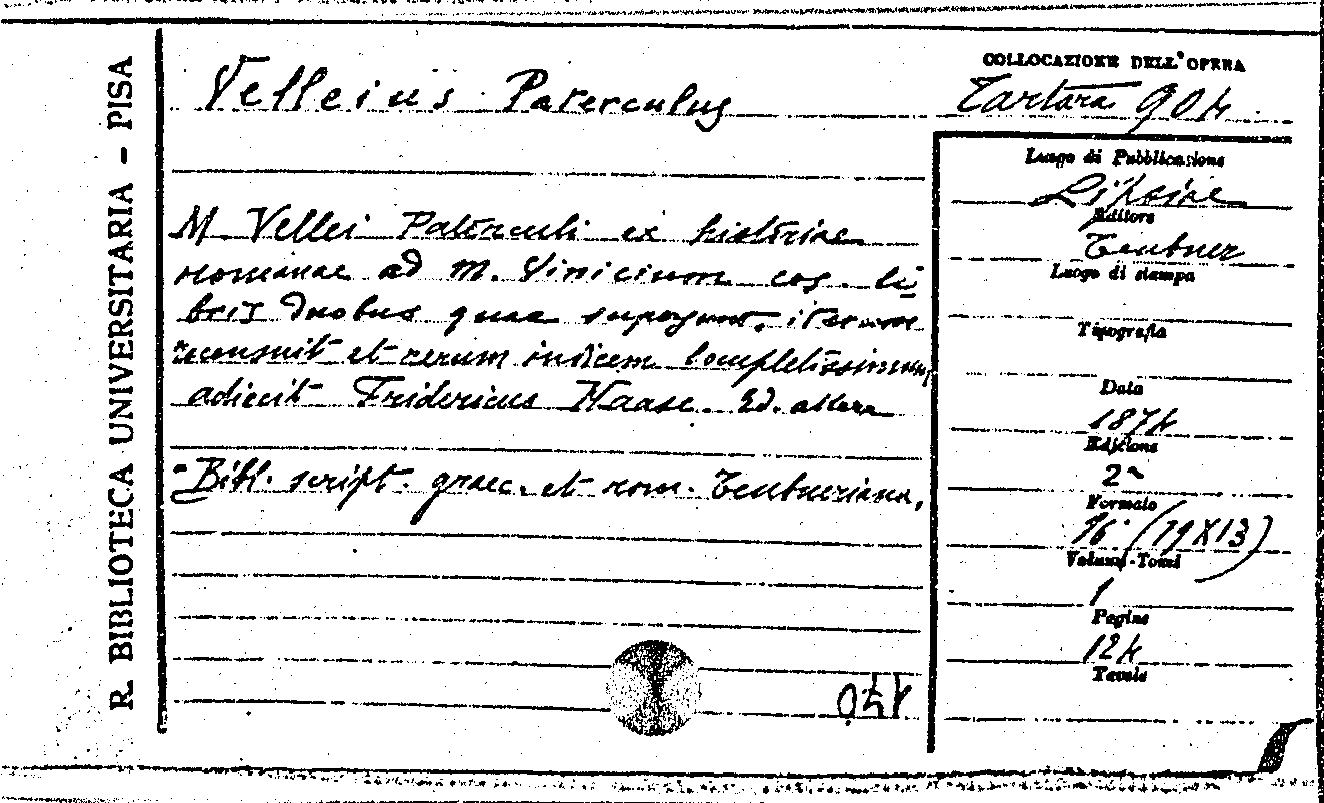 R. BIBLIOTECA UNIVERSITARIA - PISA
Velleius Paterculus
M Vellei Paterculi ex historiae
romanae ad M. Vinicium cos. li-
bris duobus quae supersunt, iterum
recensuit et rerum indicem locupletissimum
adiecit Fridericus Haase. Ed. altera
Bibl. script. graec. et rom. Teubneriana,
COLLOCAZIONE DELL'OPERA
Tartara 904
Luogo di Pubblicazione
Lipsiae
Editore
Teubner
Luogo di stampa
Tipografia
Data
1874
Edizione
2ª
Formato
16° (19X13)
Volumi-Tomi
1
Pagine
124
Tavole